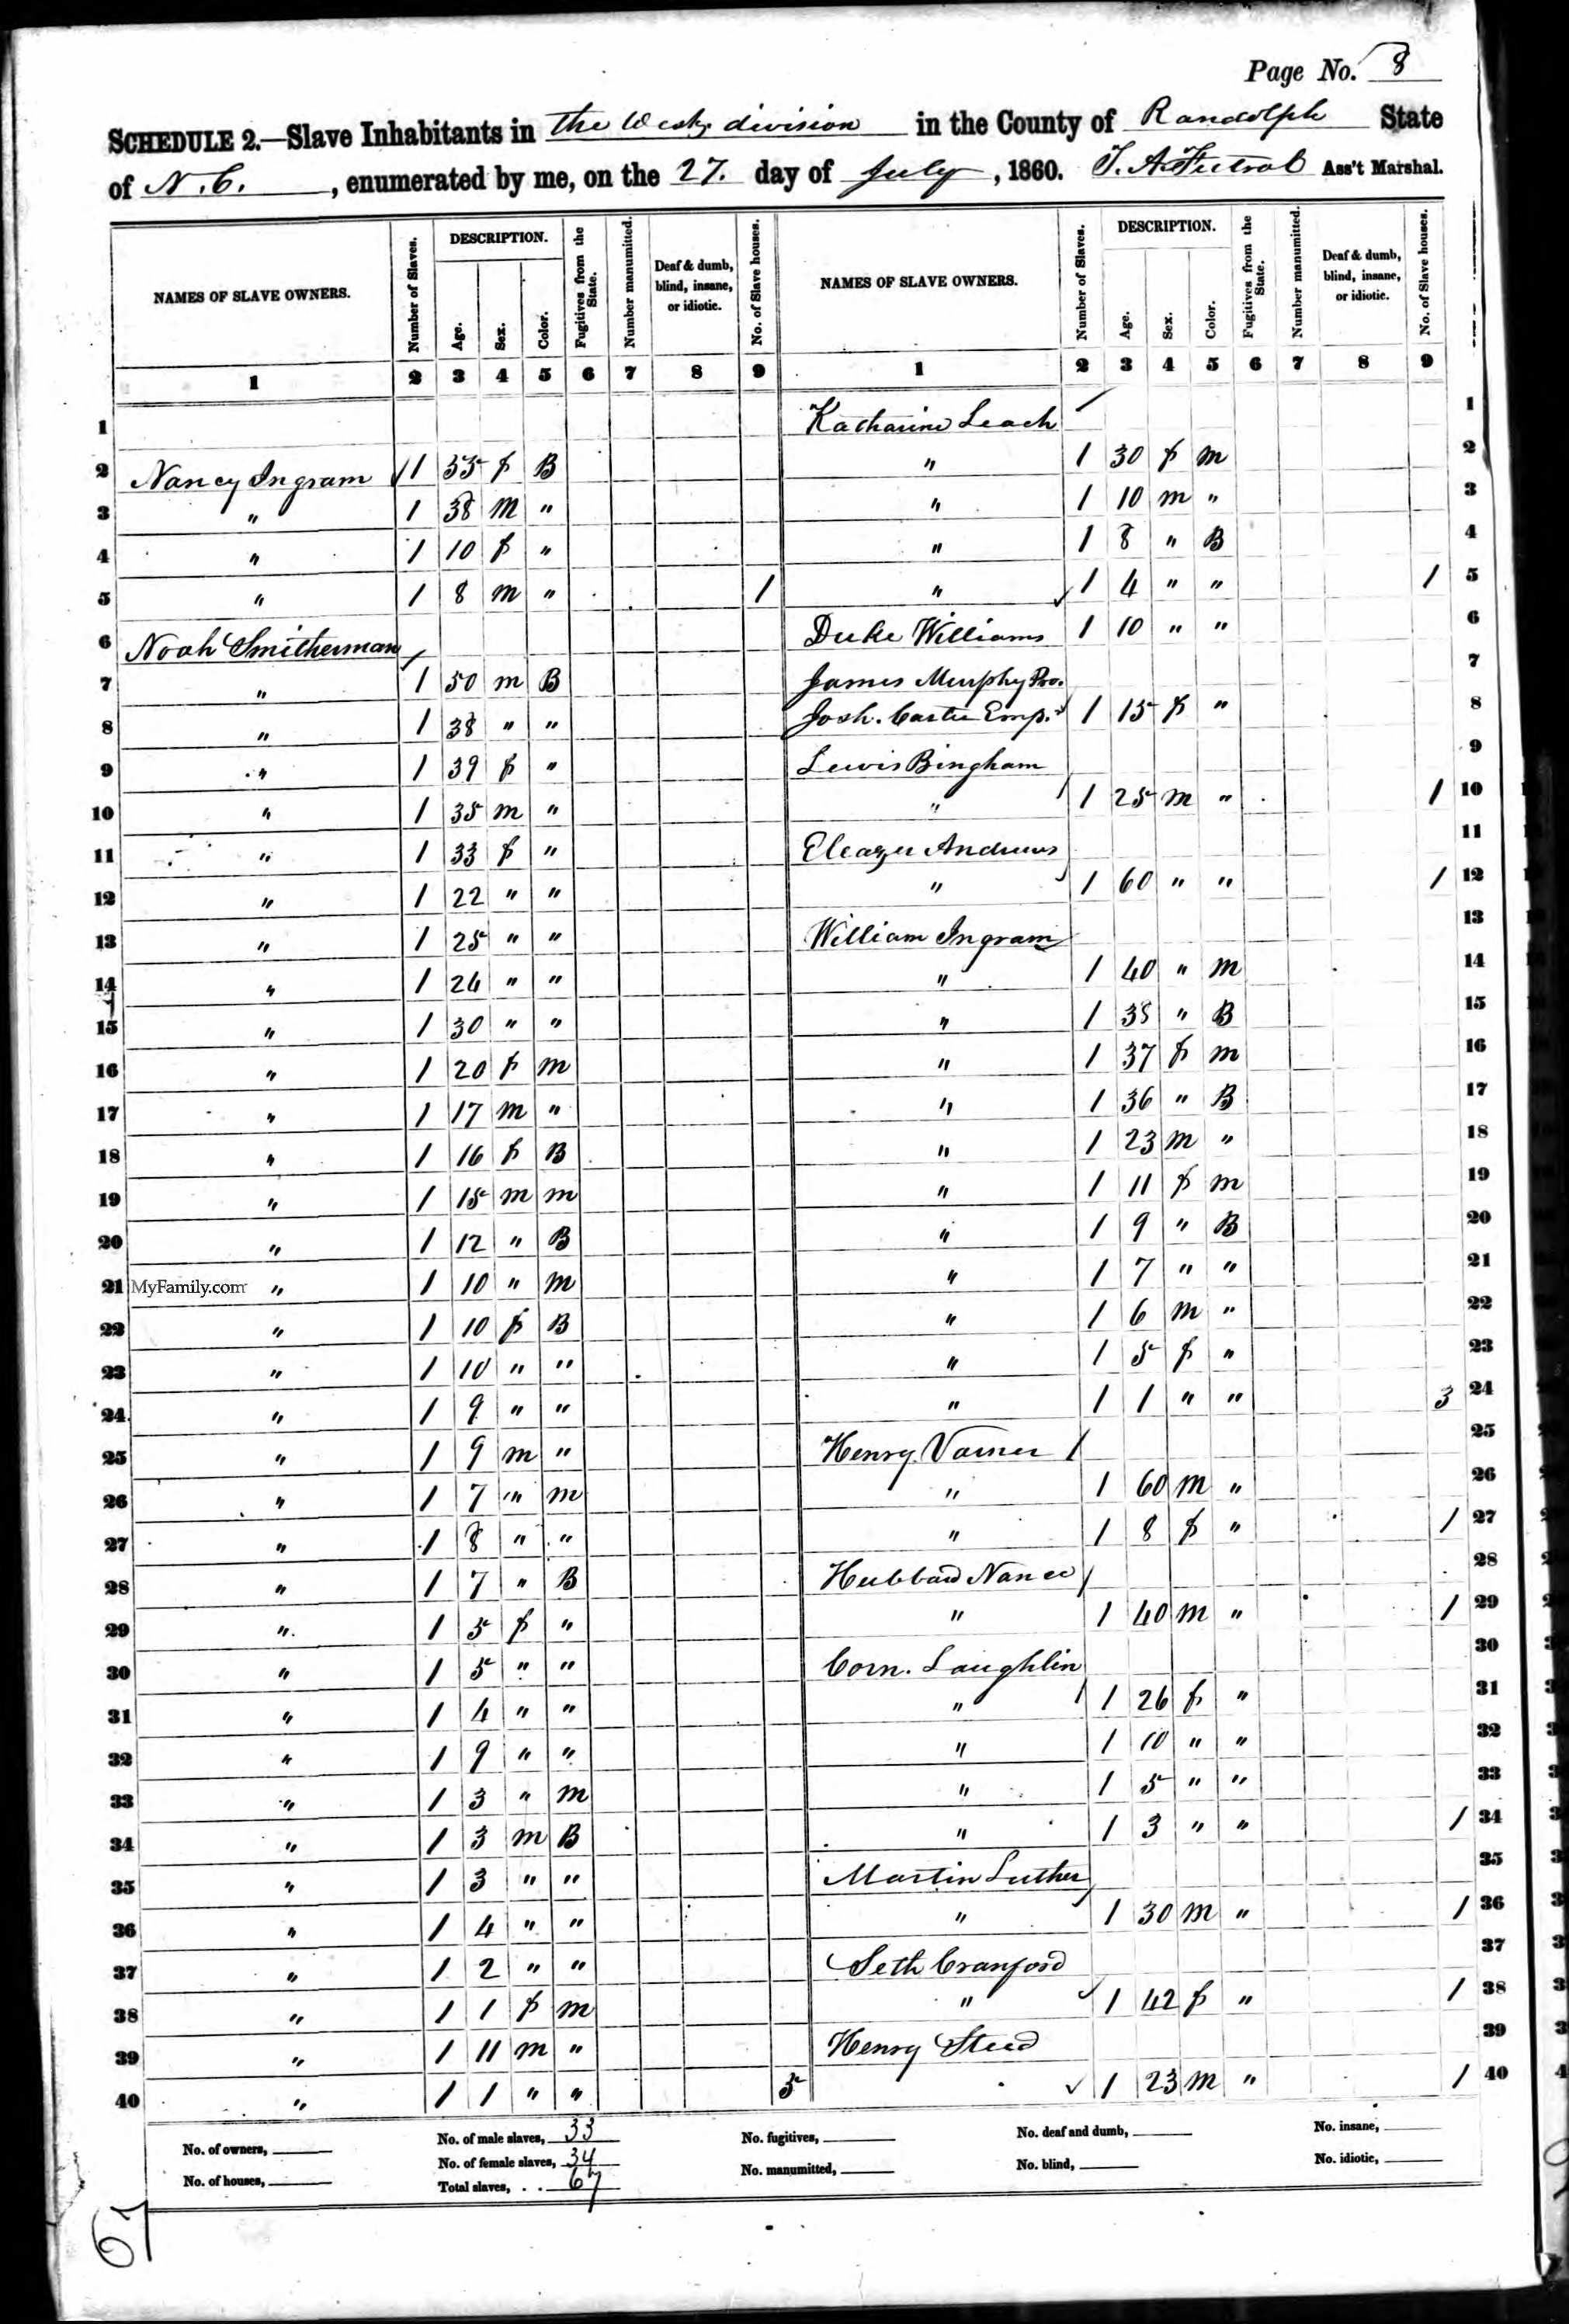 Page No. 8
SCHEDULE 2.—Slave Inhabitants in the West division in the County of Randolph State
of N.C., enumerated by me, on the 27. day of July, 1860. Ass't Marshal.
NAMES OF SLAVE OWNERS. Number of Slaves. DESCRIPTION. Age. Sex. Color. Fugitives from the State. Number manumitted. Deaf & dumb, blind, insane, or idiotic. No. of Slave houses. NAMES OF SLAVE OWNERS. Number of Slaves. DESCRIPTION. Age. Sex. Color. Fugitives from the State. Number manumitted. Deaf & dumb, blind, insane, or idiotic. No. of Slave houses.
1 2 3 4 5 6 7 8 9 1 2 3 4 5 6 7 8 9
1 Katharine Leach 1
2 Nancy Ingram 1 35 f B " 1 30 f m 2
3 " 1 38 M " " 1 10 m " 3
4 " 1 10 f " " 1 8 " B 4
5 " 1 8 m " 1 " 1 4 " " 1 5
6 Noah Smitherman Duke Williams 1 10 " " 6
7 " 1 50 m B James Murphy Pro. 7
8 " 1 38 " " Josh. Carter Emp. 1 15 f " 8
9 " 1 39 f " Lewis Bingham 9
10 " 1 35 m " " 1 25 m " 1 10
11 " 1 33 f " Eleazer Andrews 11
12 " 1 22 " " " 1 60 " " 1 12
13 " 1 25 " " William Ingram 13
14 " 1 26 " " " 1 40 " m 14
15 " 1 30 " " " 1 38 " B 15
16 " 1 20 f m " 1 37 f m 16
17 " 1 17 m " " 1 36 " B 17
18 " 1 16 f B " 1 23 m " 18
19 " 1 15 m m " 1 11 f m 19
20 " 1 12 " B " 1 9 " B 20
21 MyFamily.com " 1 10 " m " 1 7 " " 21
22 " 1 10 f B " 1 6 m " 22
23 " 1 10 " " " 1 5 f " 23
24 " 1 9 " " " 1 1 " " 3 24
25 " 1 9 m " Henry Varner 25
26 " 1 7 " m " 1 60 m " 26
27 " 1 8 " " " 1 8 f " 1 27
28 " 1 7 " B Hubbard Nance 28
29 " 1 5 f " " 1 40 m " 1 29
30 " 1 5 " " Corn. Laughlin 30
31 " 1 4 " " " 1 26 f " 31
32 " 1 9 " " " 1 10 " " 32
33 " 1 3 " m " 1 5 " " 33
34 " 1 3 m B " 1 3 " " 1 34
35 " 1 3 " " Martin Luther 35
36 " 1 4 " " " 1 30 m " 1 36
37 " 1 2 " " Seth Cranford 37
38 " 1 1 f m " 1 42 f " 1 38
39 " 1 11 m " Henry Steed 39
40 " 1 1 " " 5 1 23 m " 1 40
No. of owners, No. of male slaves, 33 No. fugitives, No. deaf and dumb, No. insane,
No. of houses, No. of female slaves, 34 No. manumitted, No. blind, No. idiotic,
Total slaves, . . 67
67